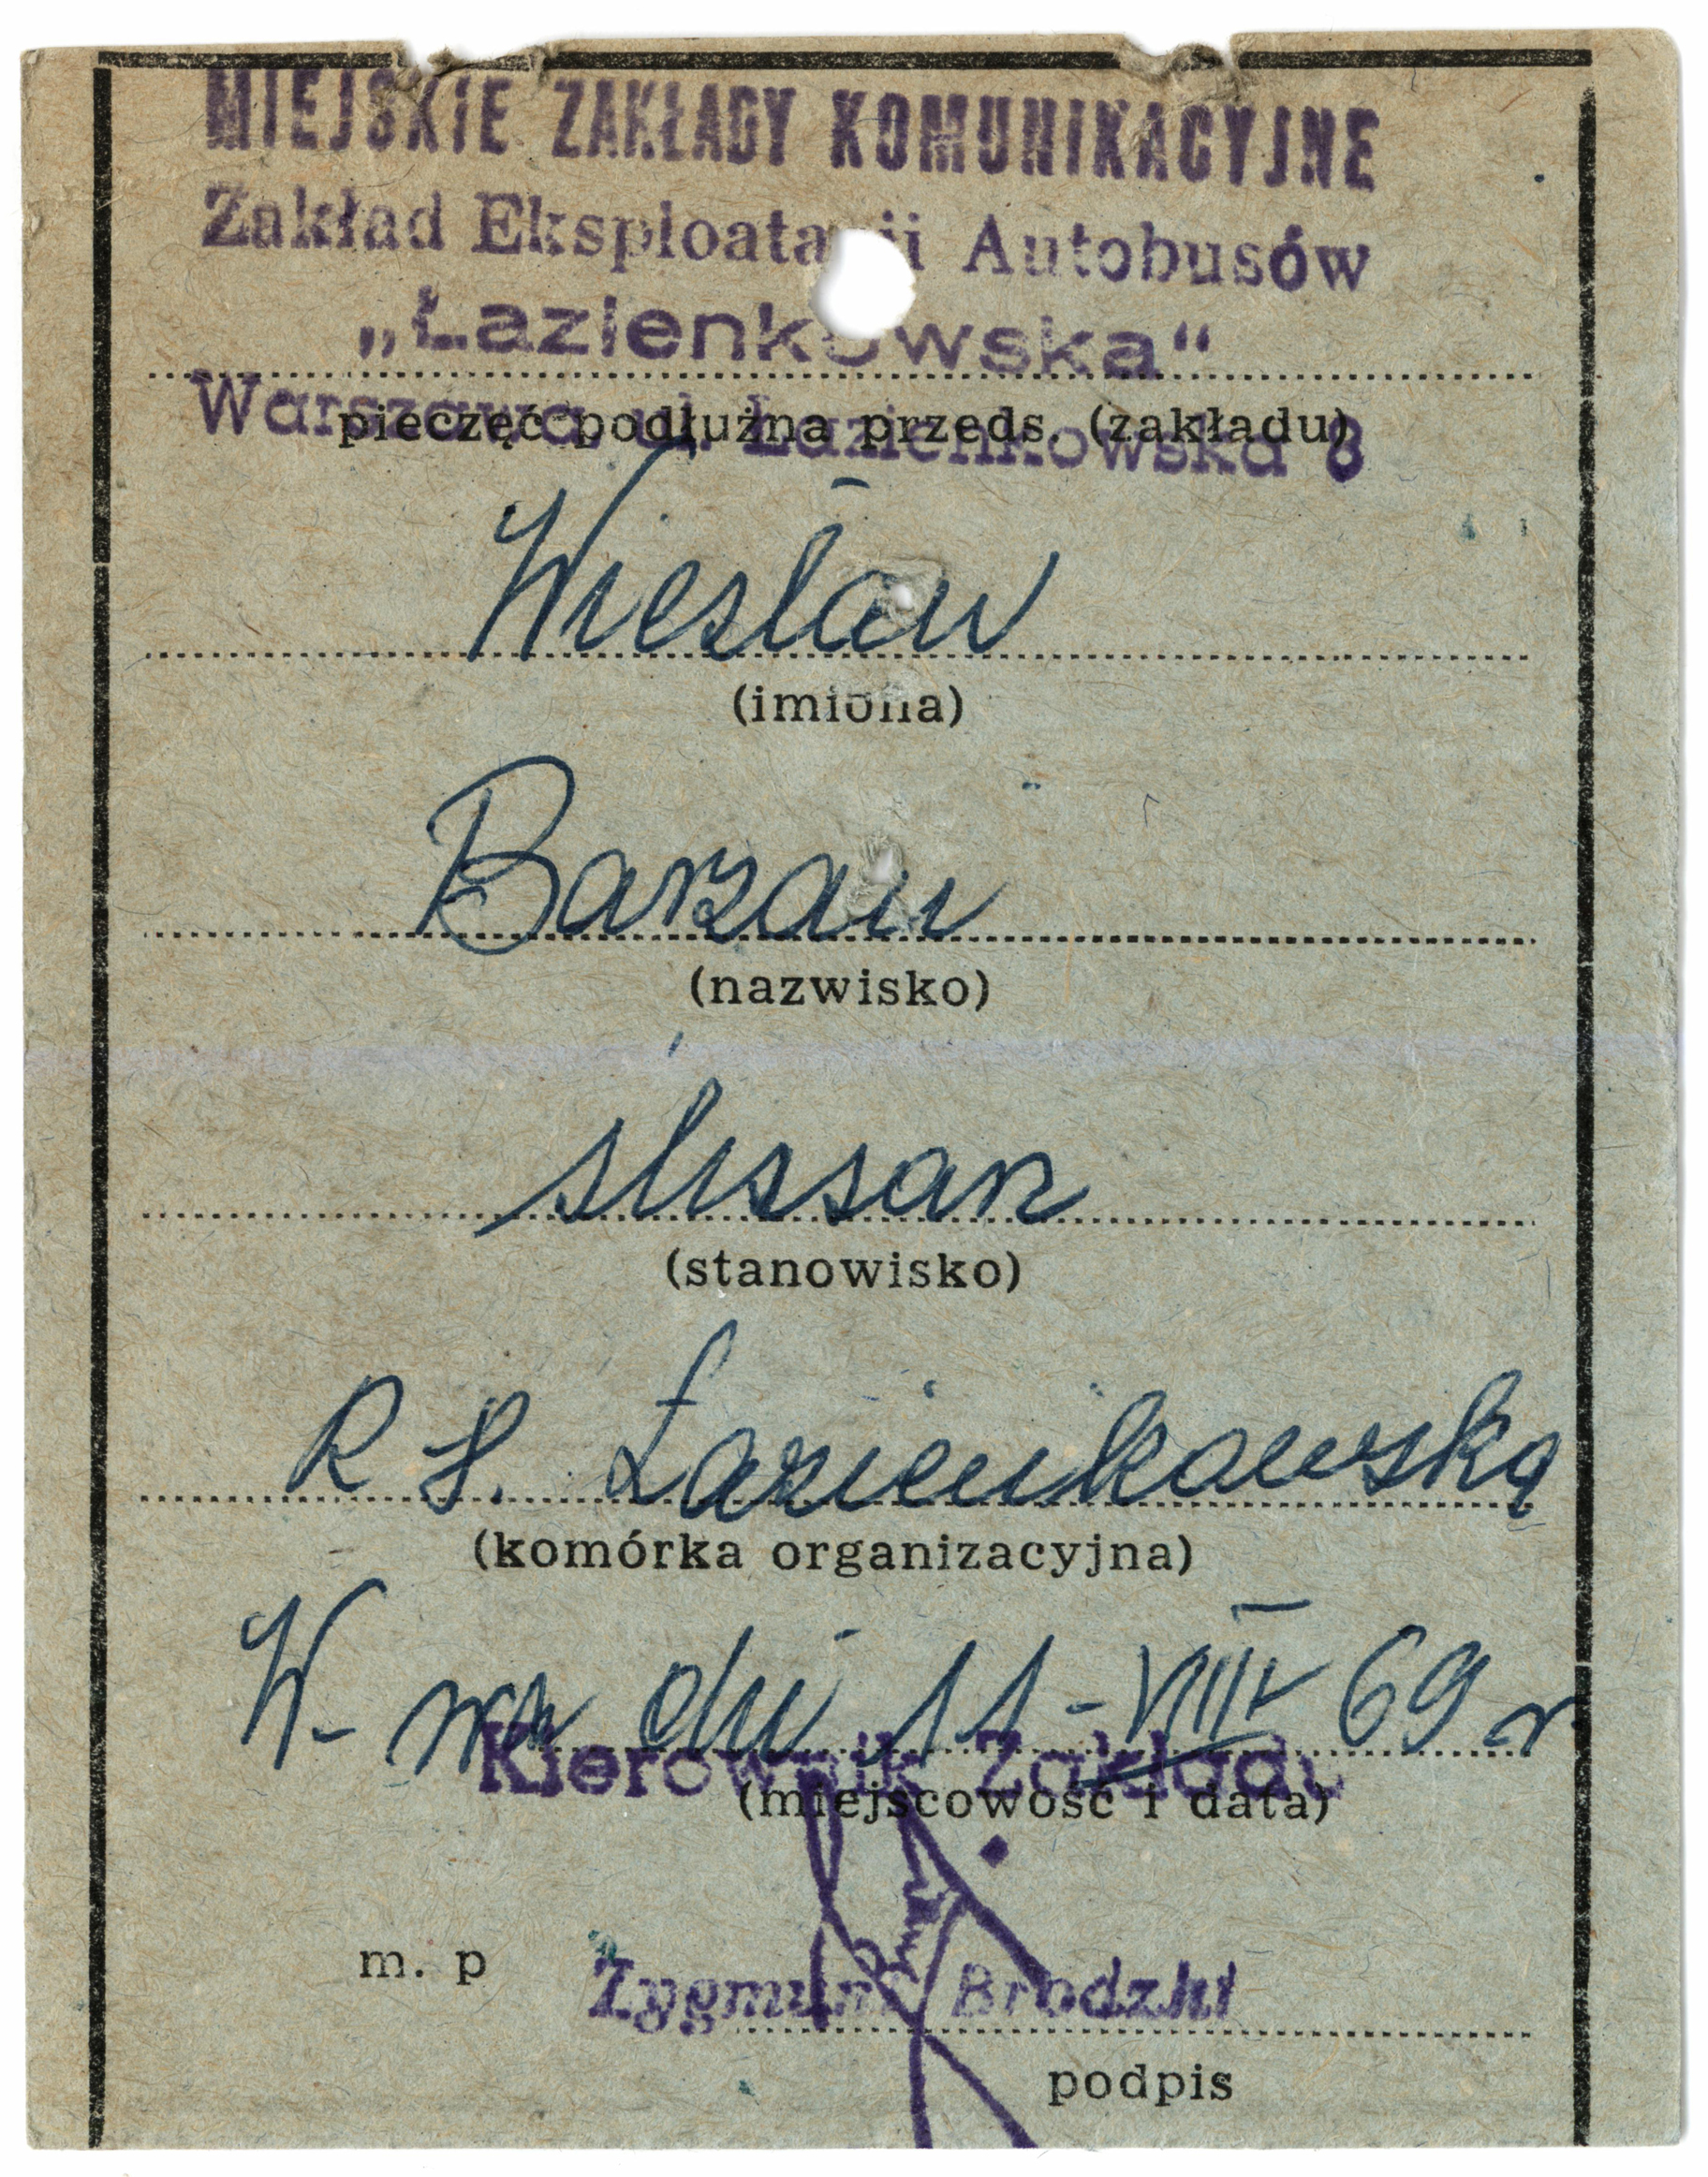 MIEJSKIE ZAKŁADY KOMUNIKACYJNE
Zakład Eksploatacji Autobusów
„Łazienkowska“
Warszawa ul. Łazienkowska 8
pieczęć podłużna przeds. (zakładu)
Wiesław
(imiona)
Barzan
(nazwisko)
ślusarz
(stanowisko)
Łazienkowska
(komórka organizacyjna)
W-wa dn 11-VIII 69 r
Kierownik Zakładu
(miejscowość i data)
m. p
Zygmunt Brodzki
podpis